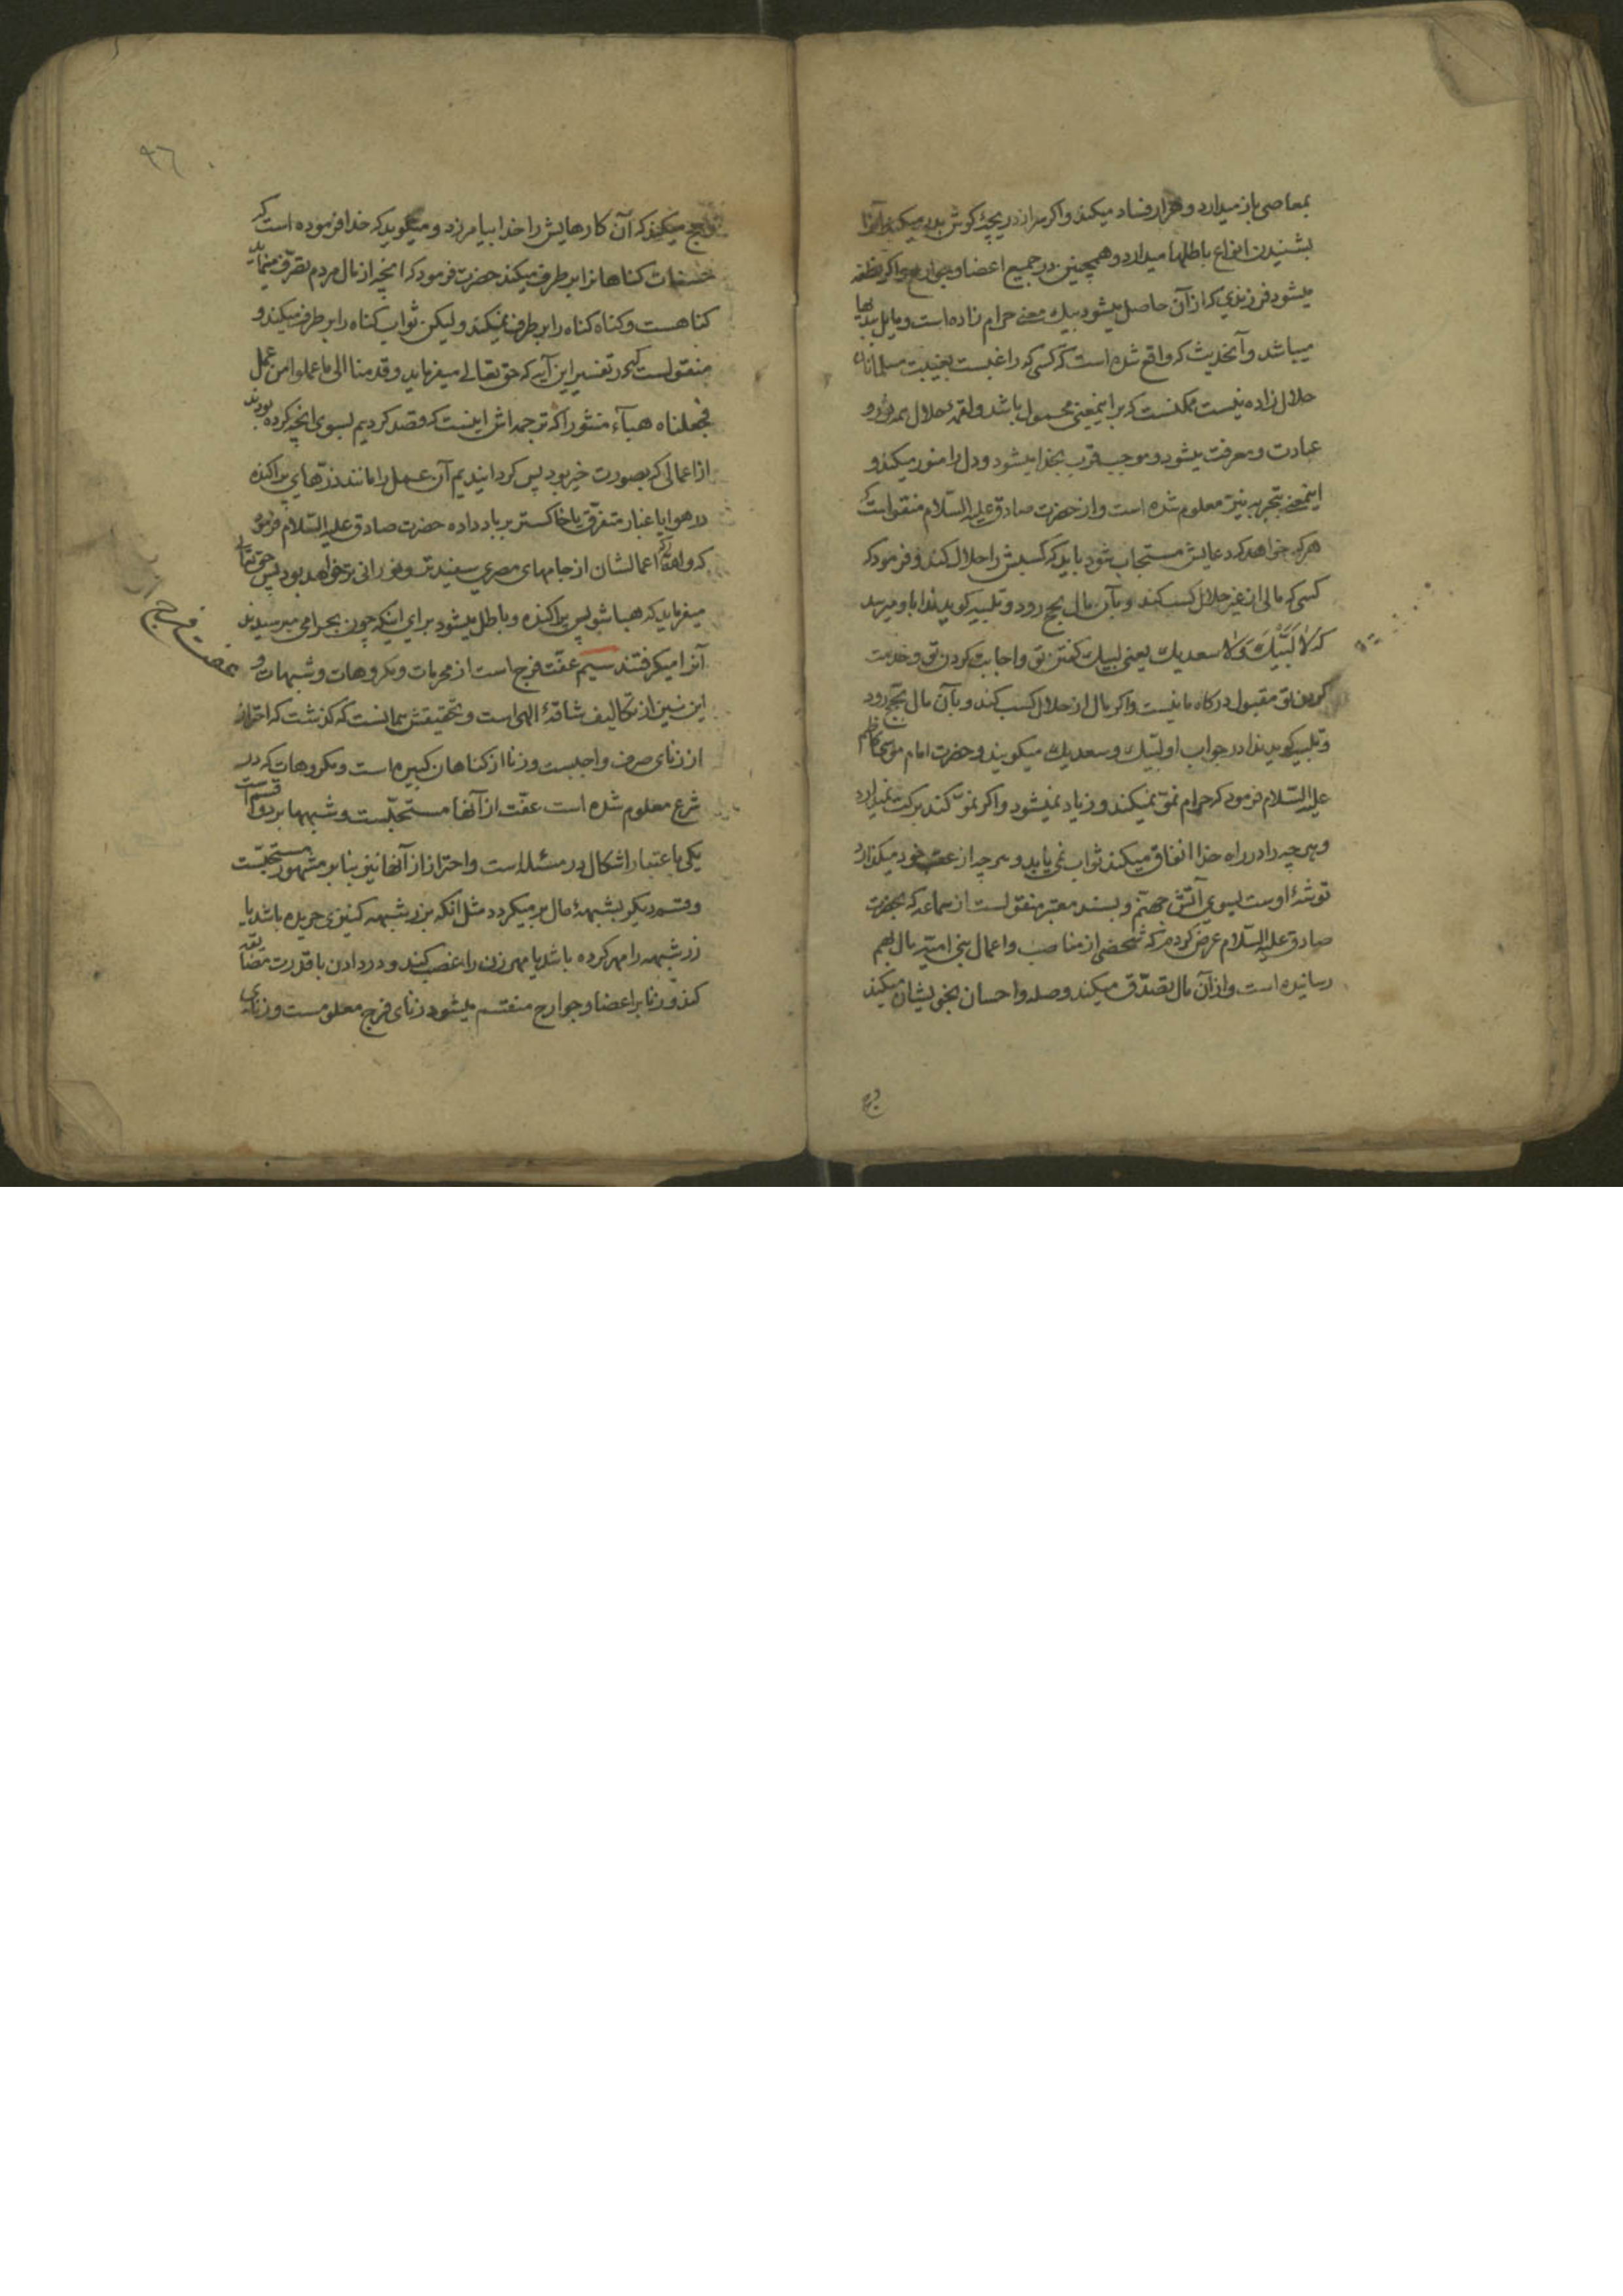 بمعاصی باز میدارد و هزار فساد میکند و اکر سر از دریچۀ کوش بدر میکند آنرا
بشنیدن انواع باطلها میدارد و همچنین در جمیع اعضا و جوارح و اکر نطفه
میشود فرزندی که از آن حاصل میشود بیك معنی حرام زاده است و مایل ببدیها
میباشد و آنحدیث که واقع شده است که کسی که راغبست بغیبت مسلمانان
حلال زاده نیست ممکنست که بر اینمعنی محمول باشد و لقمۀ حلال ممد نور و
عبادت و معرفت میشود و موجب قرب بخدا میشود و دل را منور میکند و
اینمعنی بتجربه نیز معلوم شده است و از حضرت صادق علیه السّلام منقولست که
هرکه خواهد که دعایش مستجاب شود باید که کسبش را حلال کند و فرمود که
کسی که مالی از غیر حلال کسب کند و بآن مال بحج رود و تلبیه کوید ندا باو میرسد
که لَا لَبَّیْكَ وَلَا سعدیك یعنی لبیك کفتن تو و اجابت کردن تو و خدمت
کردن تو مقبول درکاه ما نیست و اکر مال از حلال کسب کند و بآن مال بحج رود
و تلبیه کوید ندا در جواب او لبّیك و سعدیك میکویند و حضرت امام موسی کاظم
علیه السّلام فرمود که حرام نموّ نمیکند و زیاد نمیشود و اکر نموّ کند برکت نمیدارد
و هرچه را در راه خدا انفاق میکند ثواب نمی یابد و هرچه از عقب خود میکذارد
توشۀ اوست بسوی آتش جهنّم و بسند معتبر منقولست از سماعه که بحضرت
صادق علیه السّلام عرض کردم که شخصی از مناصب و اعمال بنی امیّه مال بهم
رسانیده است و از آن مال تصدّق میکند و صله و احسان بخویشان میکند
و حج
٩٦
و حج میکند که آن کارهایش را خدا بیامرزد و میکوید که خدا فرموده است که
حسنات کناهانرا برطرف میکند حضرت فرمود که آنچه از مال مردم تصرّف مینماید
کناهست و کناه کناه را برطرف نمیکند ولیکن ثواب کناه را برطرف میکند و
منقولست که در تفسیر این آیه که حق تعالی میفرماید و قدمنا الی ما عملوا من عمل
فجعلناه هبآء منثورا که ترجمه اش اینست که و قصد کردیم بسوی آنچه کرده بودند
از اعمالی که بصورت خیر بود پس کردانیدیم آن عمل را مانند ذرّهای پراکنده
در هوا یا غبار متفرّق یا خاکستر بر باد داده حضرت صادق علیه السّلام فرمود
که والله که اعمالشان از جامهای مصری سفیدتر و نورانی تر خواهد بود پس حق تعالی
میفرماید که هبا شو پس پراکنده و باطل میشود برای اینکه چون بحرامی میرسیدند
آنرا میکرفتند سیم عفّت فرج است از محرمات و مکروهات و شبهات و
عفت فرج
این نیز از تکالیف شاقۀ الهی است و تحقیقش همانست که کذشت که احتراز
از زنای صرف واجبست و زنا از کناهان کبیره است و مکروهات که در
شرع معلوم شده است عفّت از آنها مستحبّست و شبهها بر دو قسم است
یکی باعتبار اشکال در مسئله است و احتراز از آنها نیز بنا بر مشهور مستحبّست
و قسم دیکر بشبهۀ مال بر میکردد مثل آنکه بزر شبهه کنیزی خریده باشد یا
زر شبهه را مهر کرده باشد یا مهر زن را غصب کند و در دادن با قدرت مضایقه
کند و زنا بر اعضا و جوارح منقسم میشود زنای فرج معلومست و زنای